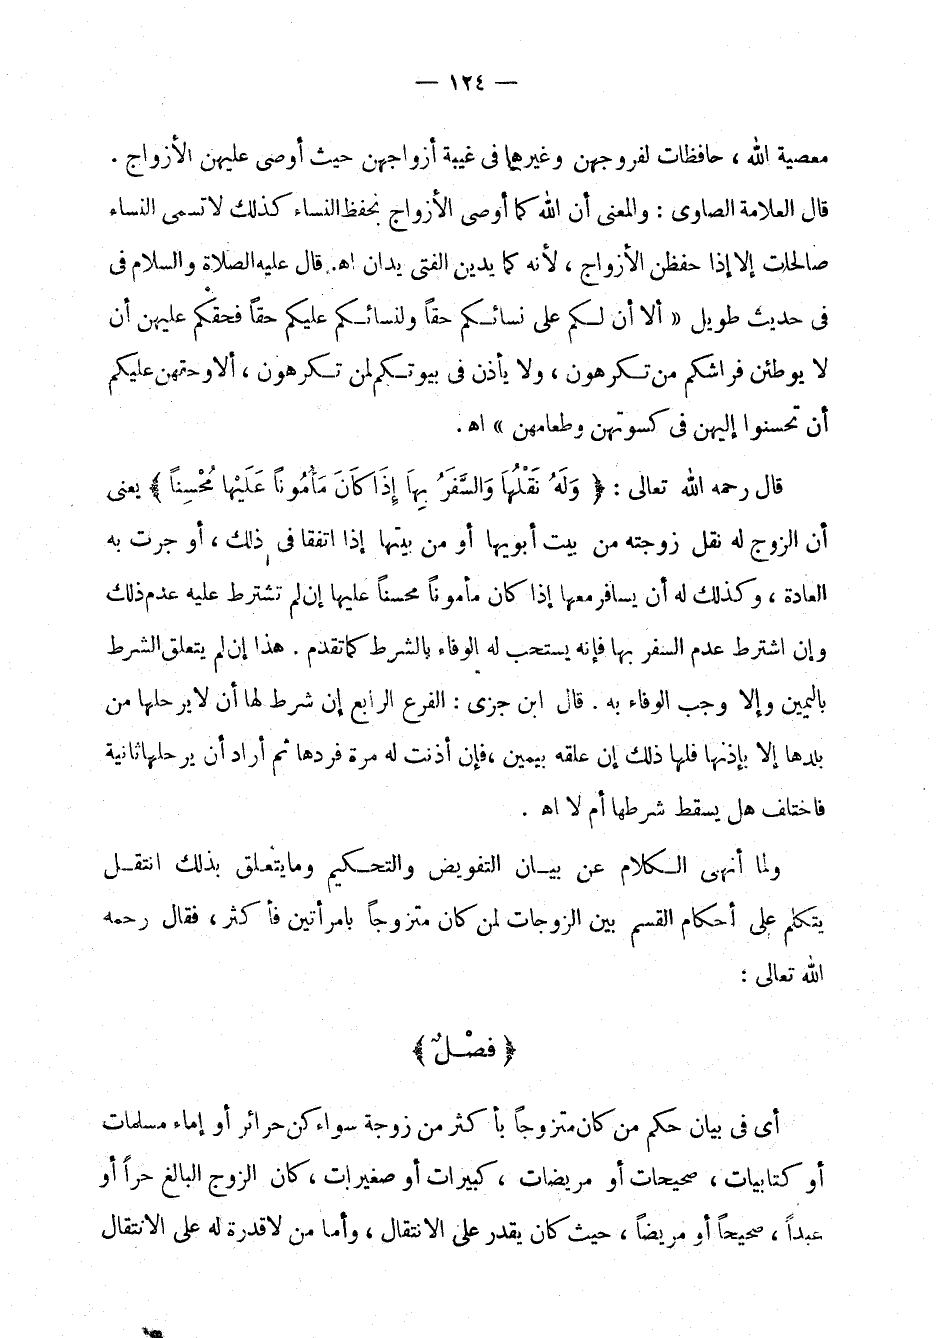 — ١٢٤ —
معصية الله ، حافظات لفروجهن وغيرها فى غيبة أزواجهن حيث أوصى عليهن الأزواج .
قال العلامة الصاوى : والمعنى أن الله كما أوصى الأزواج بحفظ النساء كذلك لا تسمى النساء
صالحات إلا إذا حفظن الأزواج ، لأنه كما يدين الفتى يدان اهـ. قال عليه الصلاة والسلام فى
فى حديث طويل « ألا أن لكم على نسائكم حقاً ولنسائكم عليكم حقاً فحقكم عليهن أن
لا يوطئن فراشكم من تكرهون ، ولا يأذن فى بيوتكم لمن تكرهون ، ألا وحقهن عليكم
أن تحسنوا إليهن فى كسوتهن وطعامهن » اهـ .
قال رحمه الله تعالى : ﴿ وَلَهُ نَقْلُهَا وَالسَّفَرُ بِهَا إِذَا كَانَ مَأْمُوناً عَلَيْهَا مُحْسِناً ﴾ يعنى
أن الزوج له نقل زوجته من بيت أبويها أو من بيتها إذا اتفقا فى ذلك ، أو جرت به
العادة ، وكذلك له أن يسافر معها إذا كان مأموناً محسناً عليها إن لم تشترط عليه عدم ذلك
وإن اشترط عدم السفر بها فإنه يستحب له الوفاء بالشرط كما تقدم . هذا إن لم يتعلق الشرط
باليمين وإلا وجب الوفاء به . قال ابن جزى : الفرع الرابع إن شرط لها أن لا يرحلها من
بلدها إلا بإذنها فلها ذلك إن علقه بيمين ، فإن أذنت له مرة فردها ثم أراد أن يرحلها ثانية
فاختلف هل يسقط شرطها أم لا اهـ .
ولما أنهى الكلام عن بيان التفويض والتحكيم وما يتعلق بذلك انتقل
يتكلم على أحكام القسم بين الزوجات لمن كان متزوجاً بامرأتين فأكثر ، فقال رحمه
الله تعالى :
﴿ فَصْلٌ ﴾
أى فى بيان حكم من كان متزوجاً بأكثر من زوجة سواء كن حرائر أو إماء مسلمات
أو كتابيات ، صحيحات أو مريضات ، كبيرات أو صغيرات ، كان الزوج البالغ حراً أو
عبداً ، صحيحاً أو مريضاً ، حيث كان يقدر على الانتقال ، وأما من لا قدرة له على الانتقال